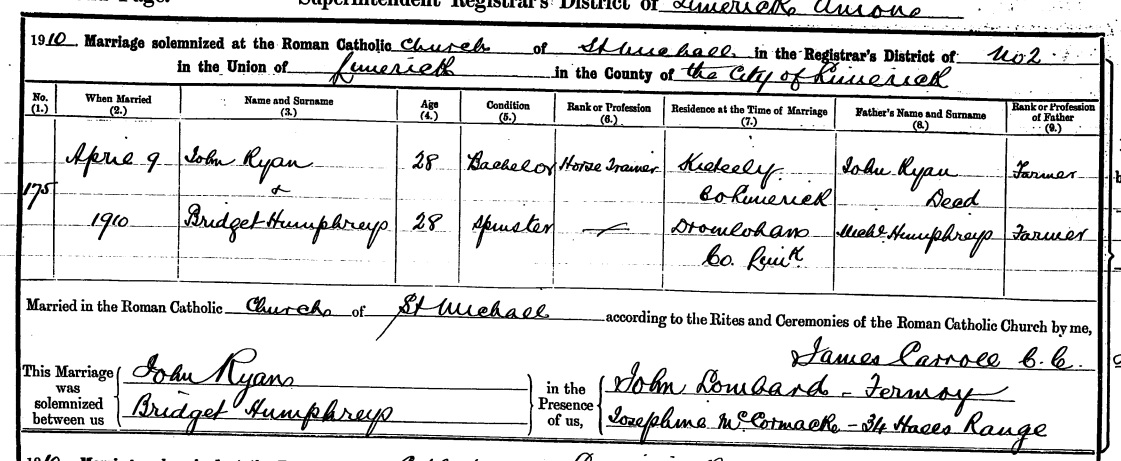 Superintendent Registrar's District of Limerick Unions
1910 Marriage solemnized at the Roman Catholic Church of St Michael in the Registrar's District of No 2
in the Union of Limerick in the County of the City of Limerick
No. (1.) When Married (2.) Name and Surname (3.) Age (4.) Condition (5.) Rank or Profession (6.) Residence at the Time of Marriage (7.) Father's Name and Surname (8.) Rank or Profession of Father (9.)
April 9 John Ryan 28 Bachelor Horse Trainer Kideely John Ryan Farmer
175 & Co Limerick Dead
1910 Bridget Humphreys 28 Spinster — Dromlohan Michl Humphreys Farmer
Co. Limk
Married in the Roman Catholic Church of St Michael according to the Rites and Ceremonies of the Roman Catholic Church by me,
James Carroll C.C.
This Marriage was solemnized between us John Ryan in the Presence of us, John Lombard - Fermoy
Bridget Humphreys Josephine McCormack - 34 Halls Range